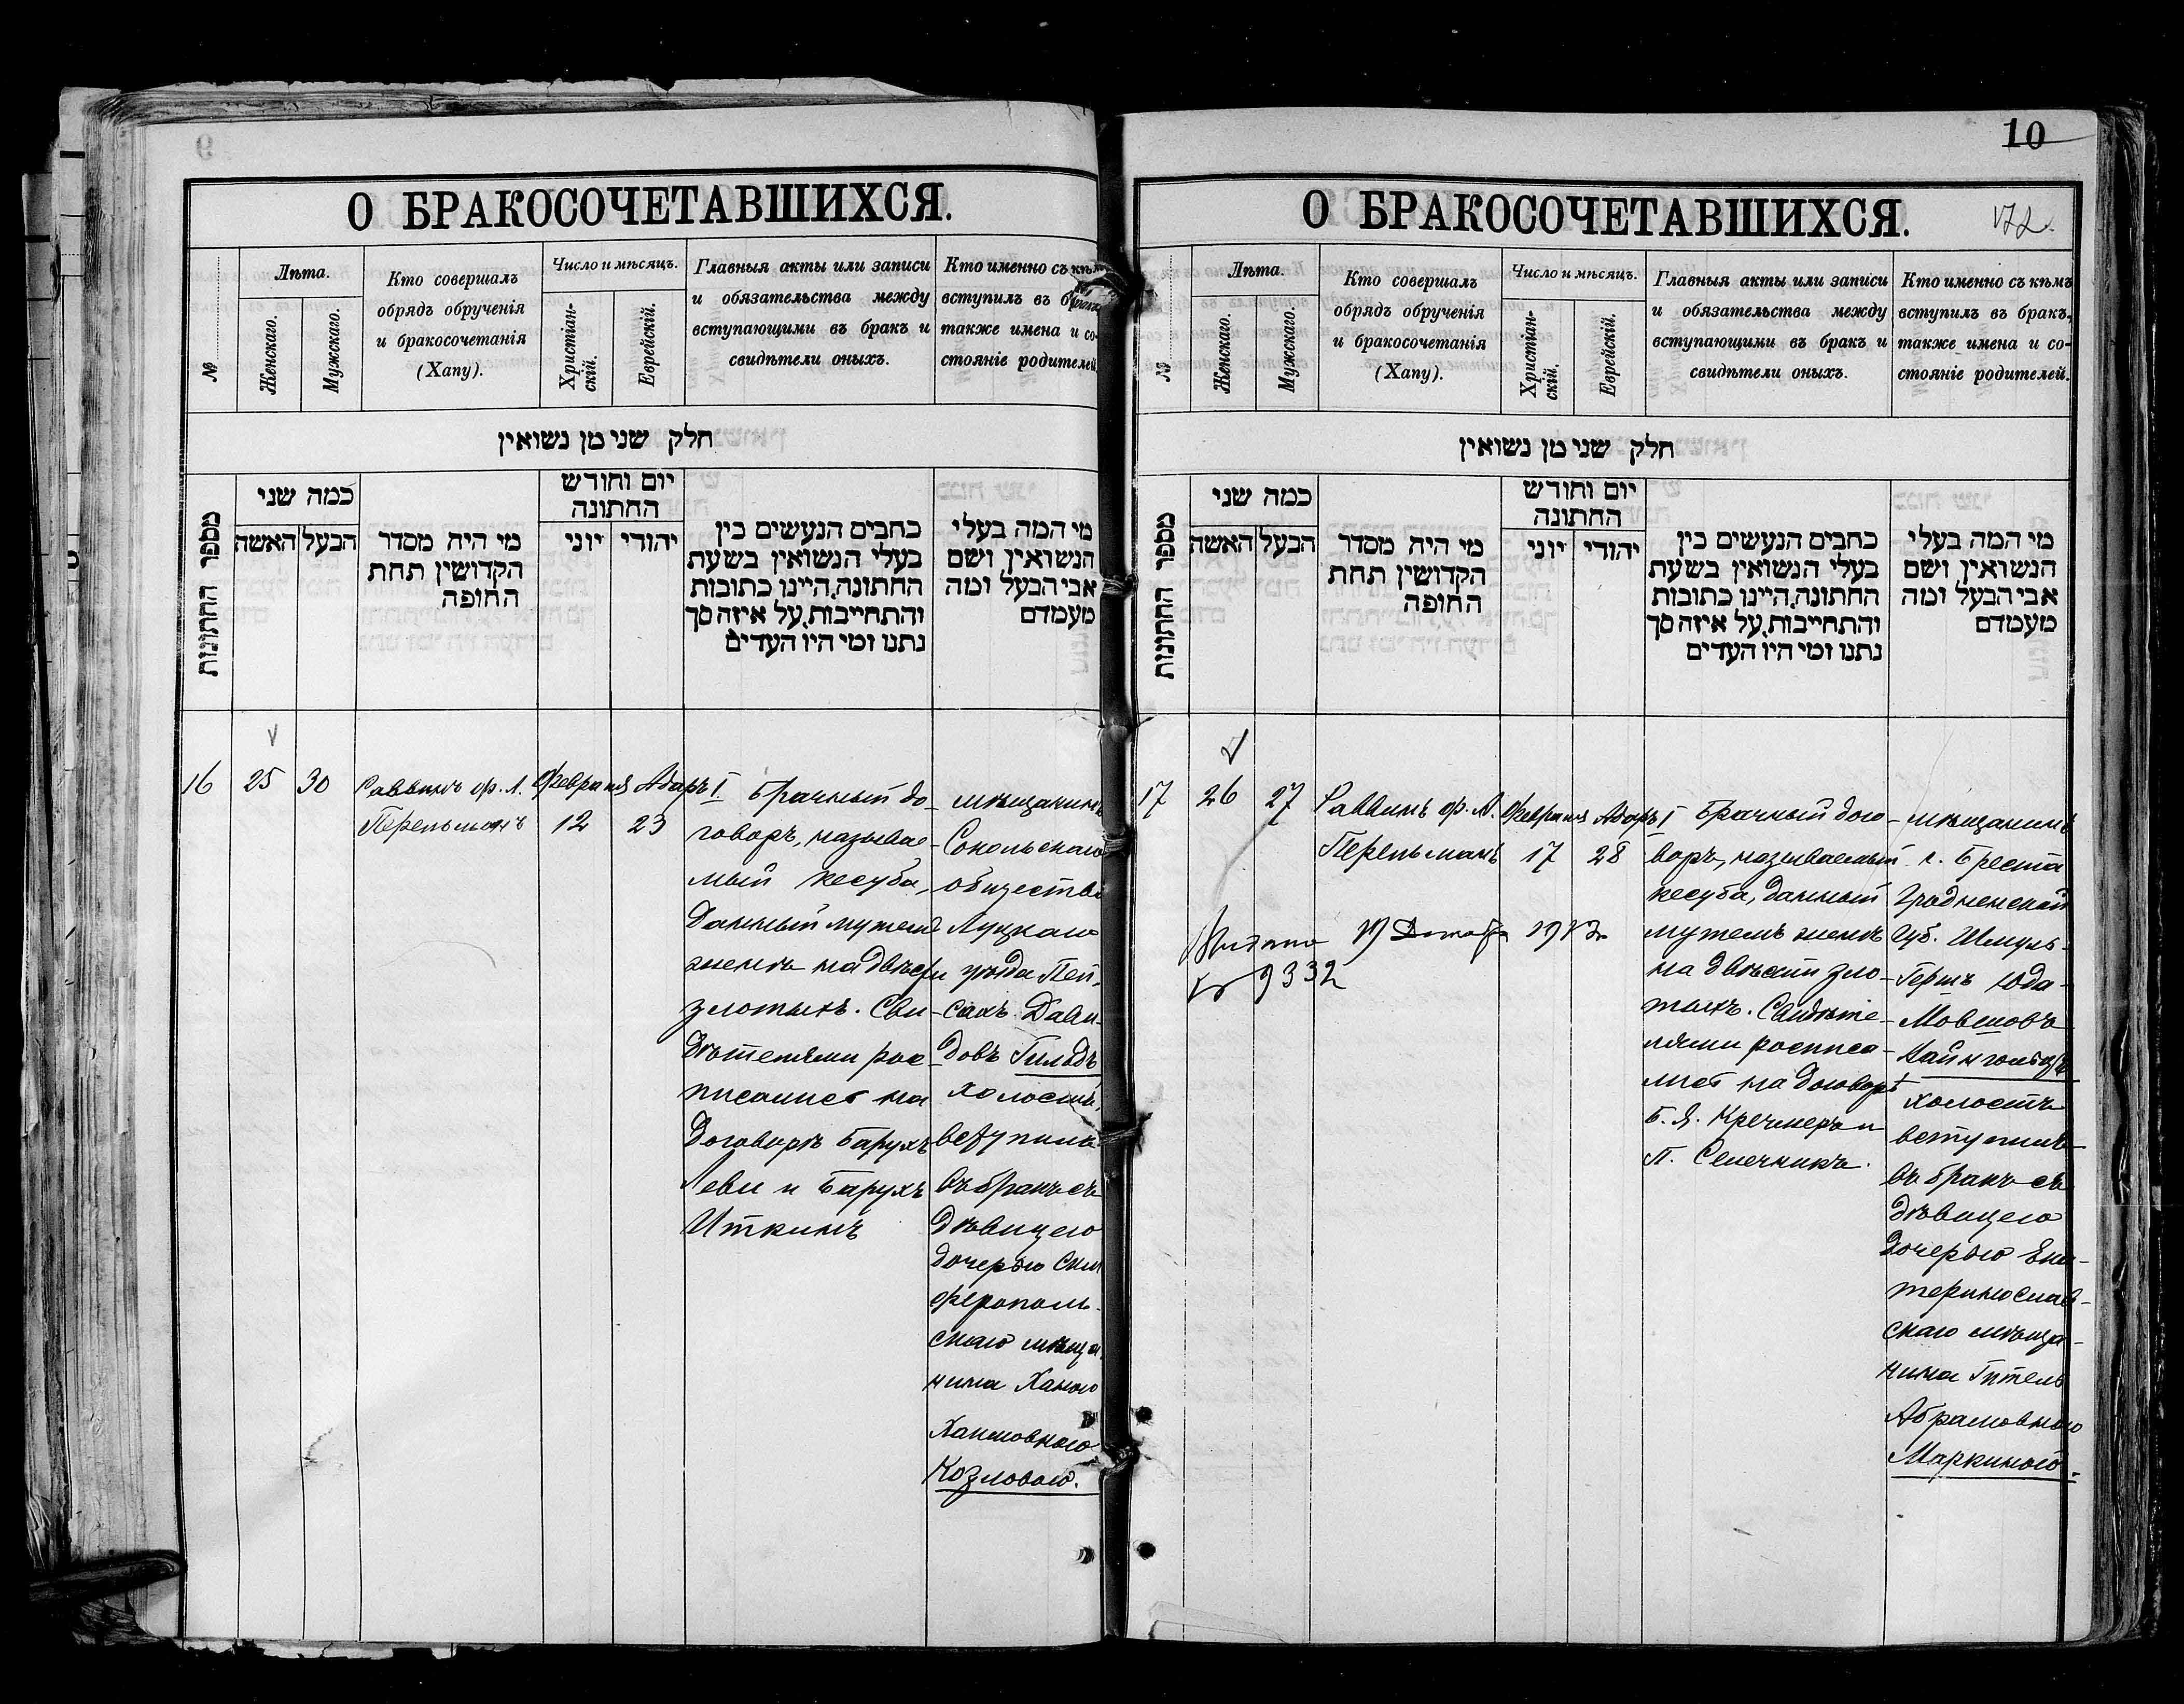 9
О БРАКОСОЧЕТАВШИХСЯ.
№
Лѣта.
Женскаго.
Мужскаго.
Кто совершалъ
обрядъ обрученія
и бракосочетанія
(Хапу).
Число и мѣсяцъ.
Христіан-
скій.
Еврейскій.
Главныя акты или записи
и обязательства между
вступающими въ бракъ и
свидѣтели оныхъ.
Кто именно съ кѣмъ
вступилъ въ бракъ,
также имена и со-
стояніе родителей
חלק שני מן נשואין
מספר החתונות
כמה שני
הבעל האשה
מי היה מסדר
הקדושין תחת
החופה
יום וחודש
החתונה
יהודי יוני
כתבים הנעשים בין
בעלי הנשואין בשעת
החתונה, היינו כתובות
והתחייבות, על איזה סך
נתנו ומי היו העדים
מי המה בעלי
הנשואין ושם
אבי הבעל ומה
מעמדם
16 25 30
Раввинъ ф. Л.
Перельманъ
Февраля
12
Адаръ I
23
Брачный до-
говоръ, называе-
мый кесуба,
данный мужемъ
женѣ на двѣсти
злотыхъ. Сви-
дѣтелями рос-
писались на
договорѣ Барухъ
Леви и Барухъ
Иткинъ
мѣщанинъ
Сокольскаго
общества
Луцкаго
уѣзда Пей-
сахъ Дави-
довъ Гильдъ
холостъ,
вступилъ
въ бракъ съ
дѣвицею
дочерью Сим
ферополь-
скаго мѣща
нина Ханою
Хаимовною
Козловою.
10
О БРАКОСОЧЕТАВШИХСЯ.
172.
№
Лѣта.
Женскаго.
Мужскаго.
Кто совершалъ
обрядъ обрученія
и бракосочетанія
(Хапу).
Число и мѣсяцъ.
Христіан-
скій.
Еврейскій.
Главныя акты или записи
и обязательства между
вступающими въ бракъ и
свидѣтели оныхъ.
Кто именно съ кѣмъ
вступилъ въ бракъ,
также имена и со-
стояніе родителей.
חלק שני מן נשואין
מספר החתונות
כמה שני
הבעל האשה
מי היה מסדר
הקדושין תחת
החופה
יום וחודש
החתונה
יהודי יוני
כתבים הנעשים בין
בעלי הנשואין בשעת
החתונה, היינו כתובות
והתחייבות, על איזה סך
נתנו ומי היו העדים
מי המה בעלי
הנשואין ושם
אבי הבעל ומה
מעמדם
17 26 27
Раввинъ ф. Л.
Перельманъ
Февраля
17
Адаръ I
28
9332
Брачный дого-
воръ, называемый
кесуба, данный
мужемъ женѣ
на двѣсти зло-
тыхъ. Свидѣте-
лями росписа-
лись на договорѣ
Б. Я. Кречмеръ и
П. Селечникъ.
мѣщанинъ
г. Бреста
Гродненской
губ. Шмуль-
Гершъ Юда-
Мовшовъ
Вайнгольцъ
холостъ
вступилъ
въ бракъ съ
дѣвицею
дочерью Ека-
теринослав-
скаго мѣща-
нина Гитель
Абрамовною
Маркиною.